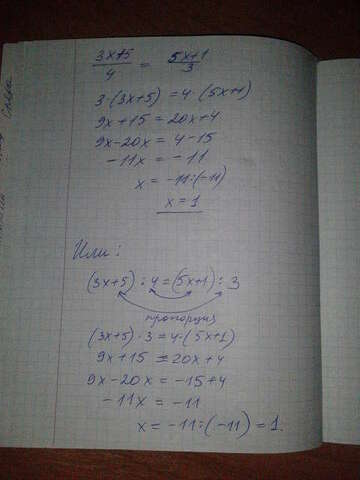 3x+5 / 4 = 5x+1 / 3
3·(3x+5) = 4·(5x+1)
9x+15 = 20x+4
9x-20x = 4-15
-11x = -11
x = -11:(-11)
x = 1
Или:
(3x+5) : 4 = (5x+1) : 3
пропорция
(3x+5)·3 = 4·(5x+1)
9x+15 = 20x+4
9x-20x = -15+4
-11x = -11
x = -11:(-11) = 1.